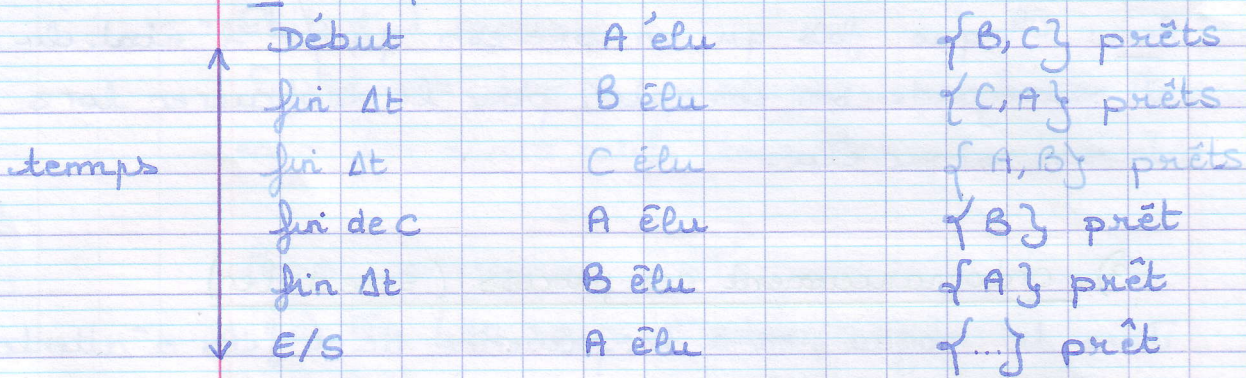 Début A élu {B, C} prêts
fin Δt B élu {C, A} prêts
temps fin Δt C élu {A, B} prêts
fin de C A élu {B} prêt
fin Δt B élu {A} prêt
E/S A élu {...} prêt